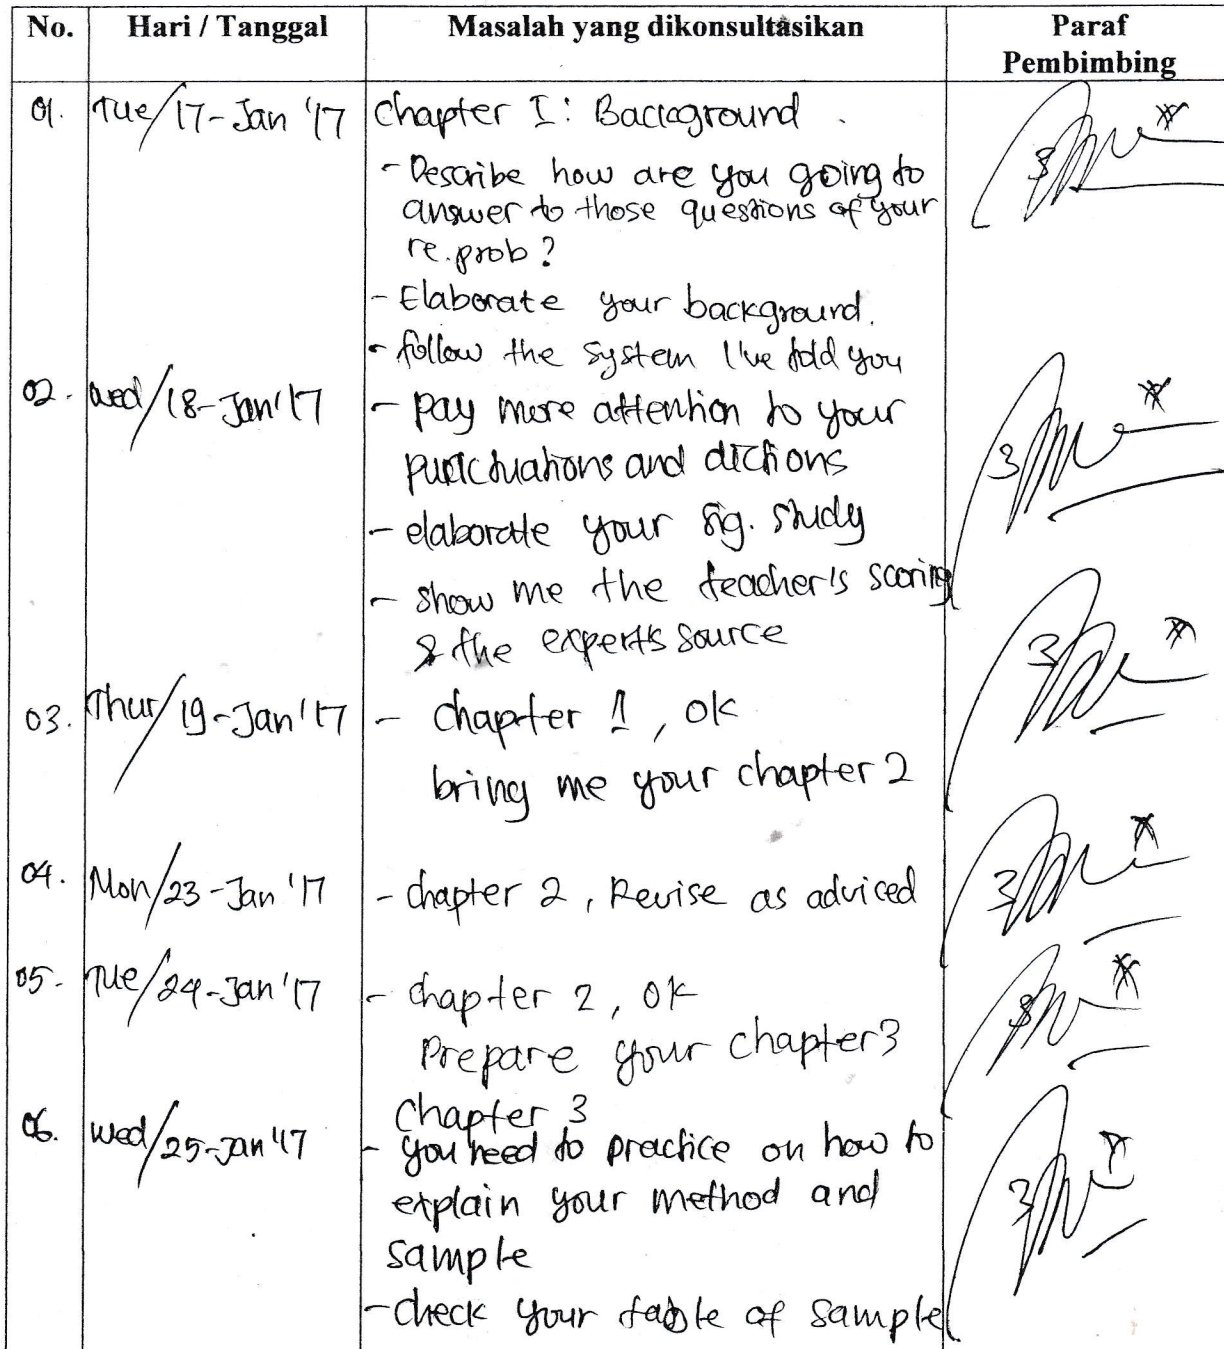 No. Hari / Tanggal Masalah yang dikonsultasikan Paraf
Pembimbing
01. Tue/17-Jan '17 Chapter I: Background
- Describe how are you going to
answer to those questions of your
re.prob?
- Elaborate your background.
- follow the system I've told you
02. Wed/18-Jan'17 - pay more attention to your
punctuations and dictions
- elaborate your sig. study
- show me the teacher's scoring
& the expert's source
03. Thur/19-Jan'17 - chapter 1, ok
bring me your chapter 2
04. Mon/23-Jan '17 - chapter 2, Revise as adviced
05. Tue/24-Jan'17 - chapter 2, ok
Prepare your chapter 3
Chapter 3
06. Wed/25-Jan'17 - you need to practice on how to
explain your method and
sample
- check your table of sample